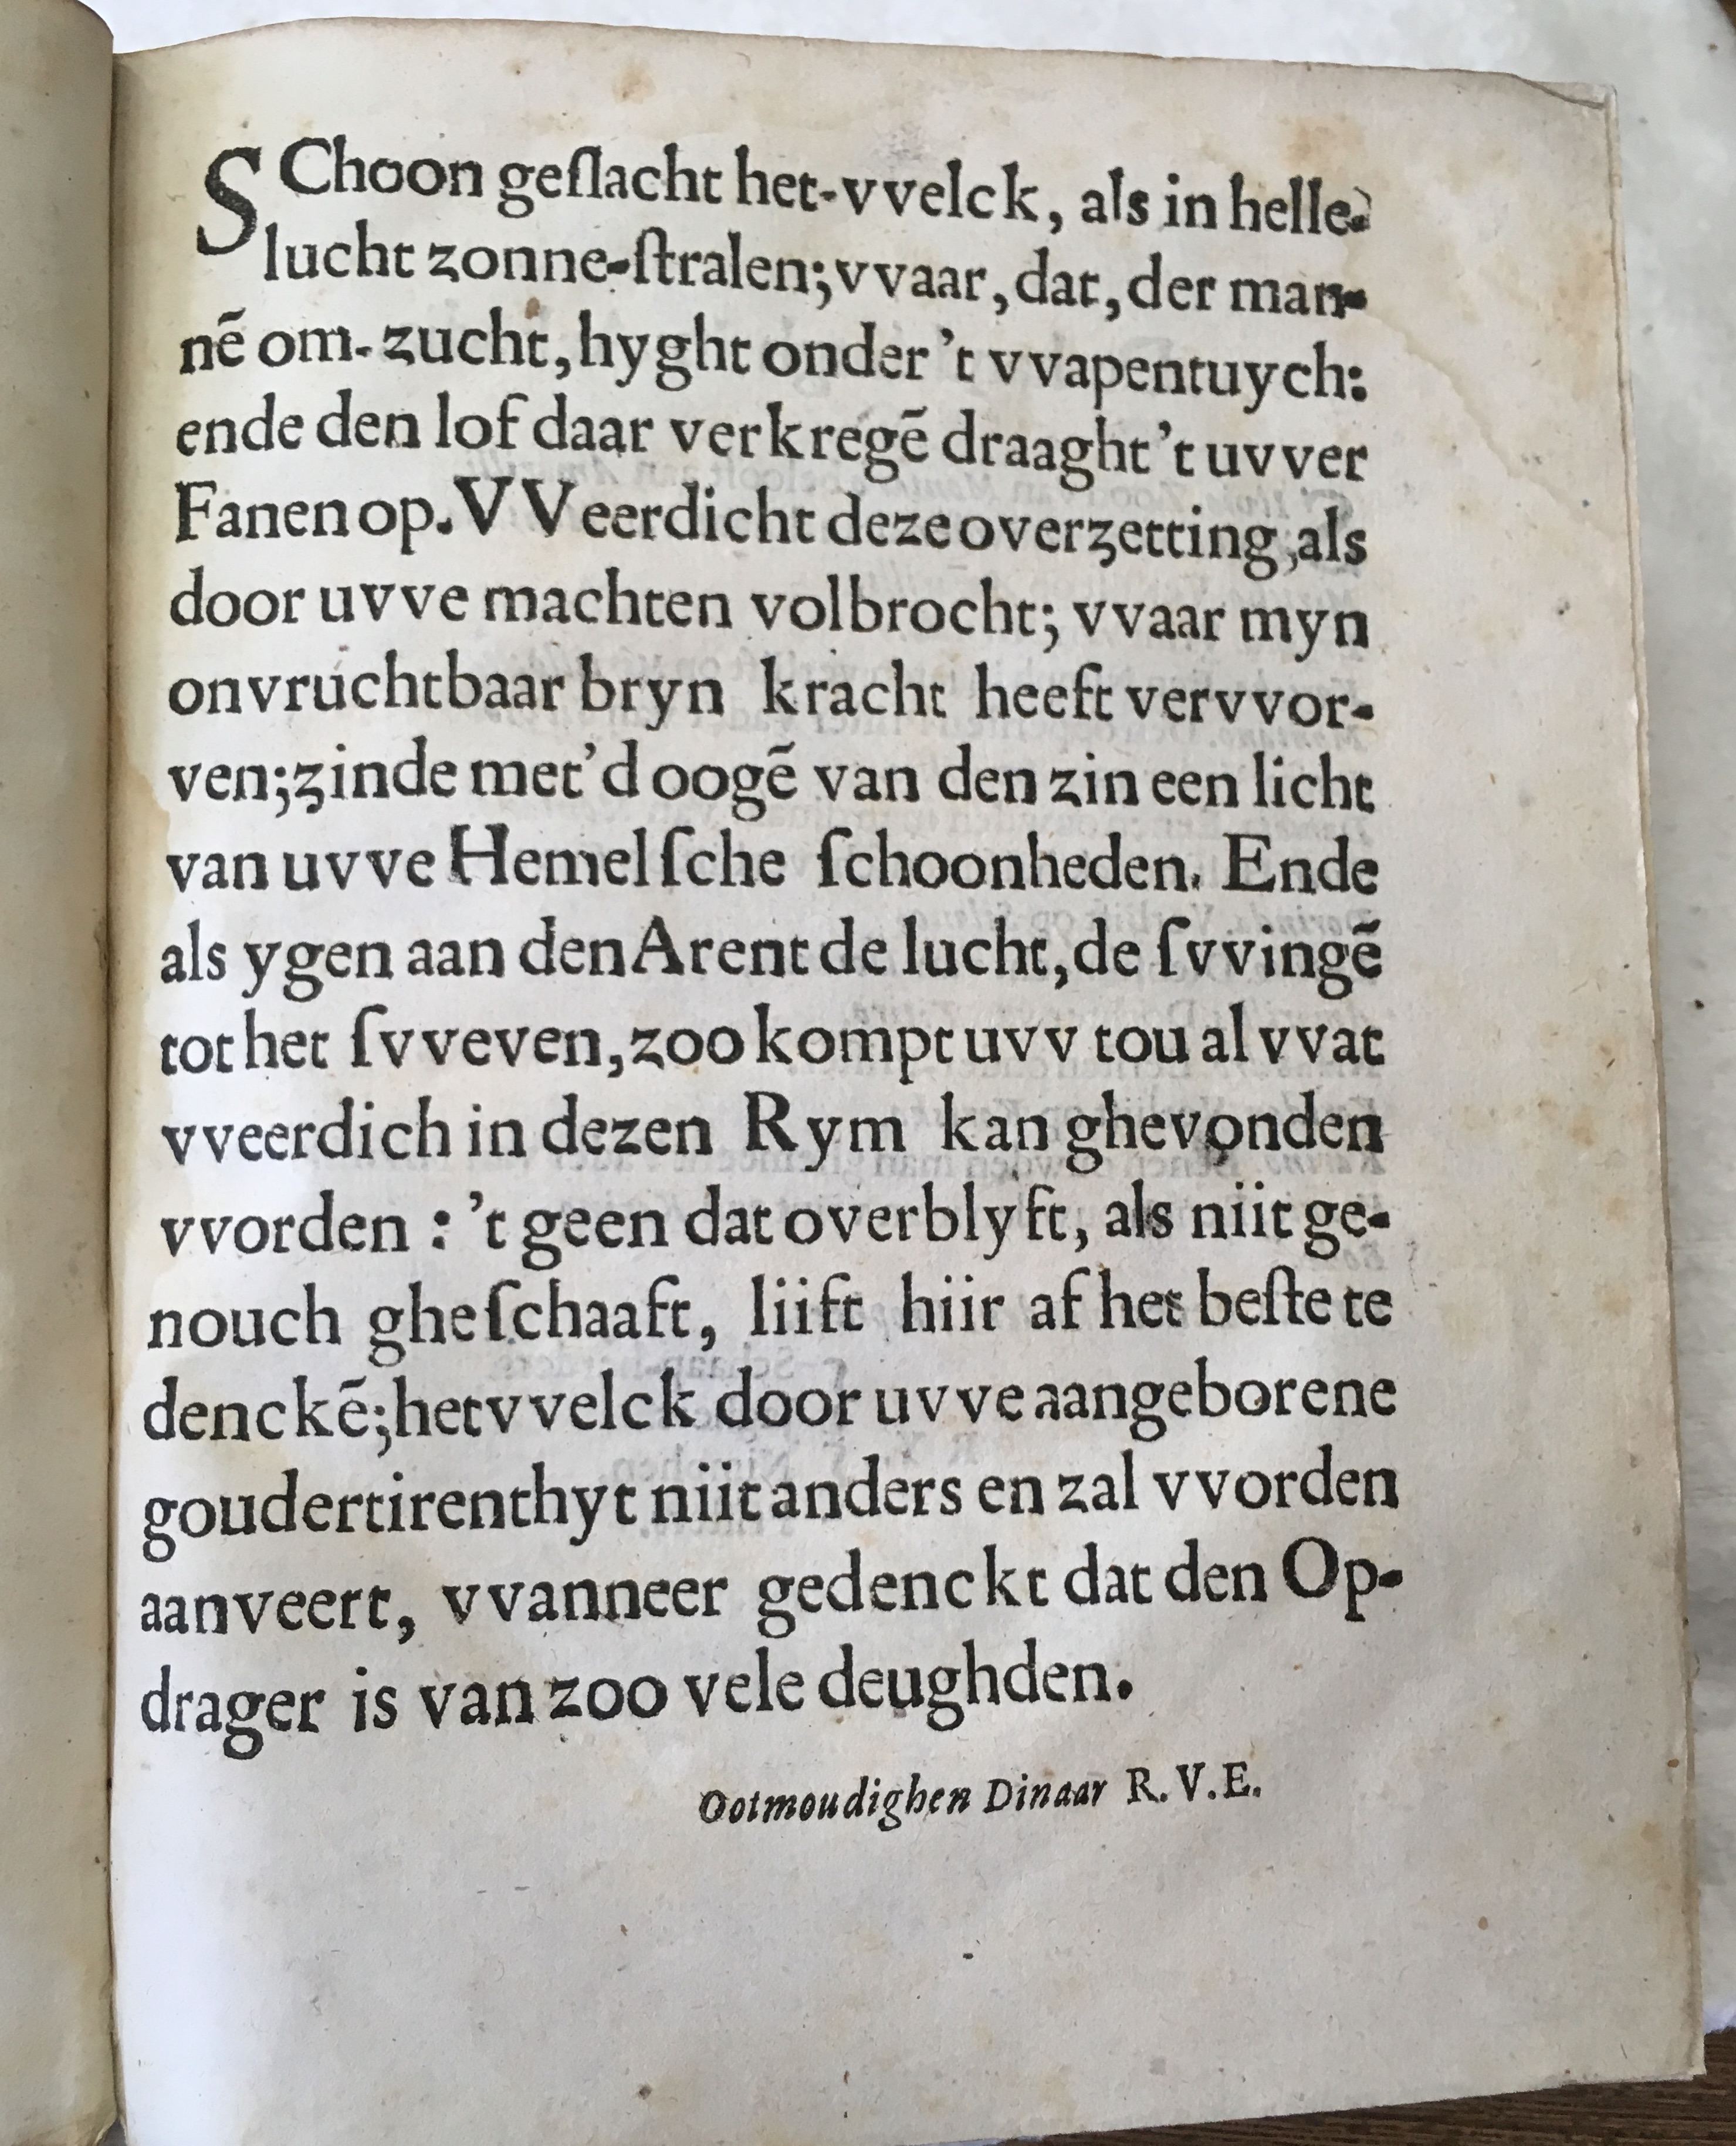 SChoon geſlacht het-vvelck, als in helle
lucht zonne-ſtralen; vvaar, dat, der man-
nẽ om-zucht, hyght onder 't vvapentuych:
ende den lof daar verkregẽ draaght 't uvver
Fanen op. VVeerdicht deze overzetting, als
door uvve machten volbrocht; vvaar myn
onvruchtbaar bryn kracht heeft vervvor-
ven; zinde met 'd oogẽ van den zin een licht
van uvve Hemelſche ſchoonheden. Ende
als ygen aan den Arent de lucht, de ſvvingẽ
tot het ſvveven, zoo kompt uvv tou al vvat
vveerdich in dezen Rym kan ghevonden
vvorden : 't geen dat overblyft, als niit ge-
nouch gheſchaaft, liift hiir af het beſte te
denckẽ; hetvvelck door uvve aangeborene
goudertirenthyt niit anders en zal vvorden
aanveert, vvanneer gedenckt dat den Op-
drager is van zoo vele deughden.
Ootmoudighen Dinaar R. V. E.